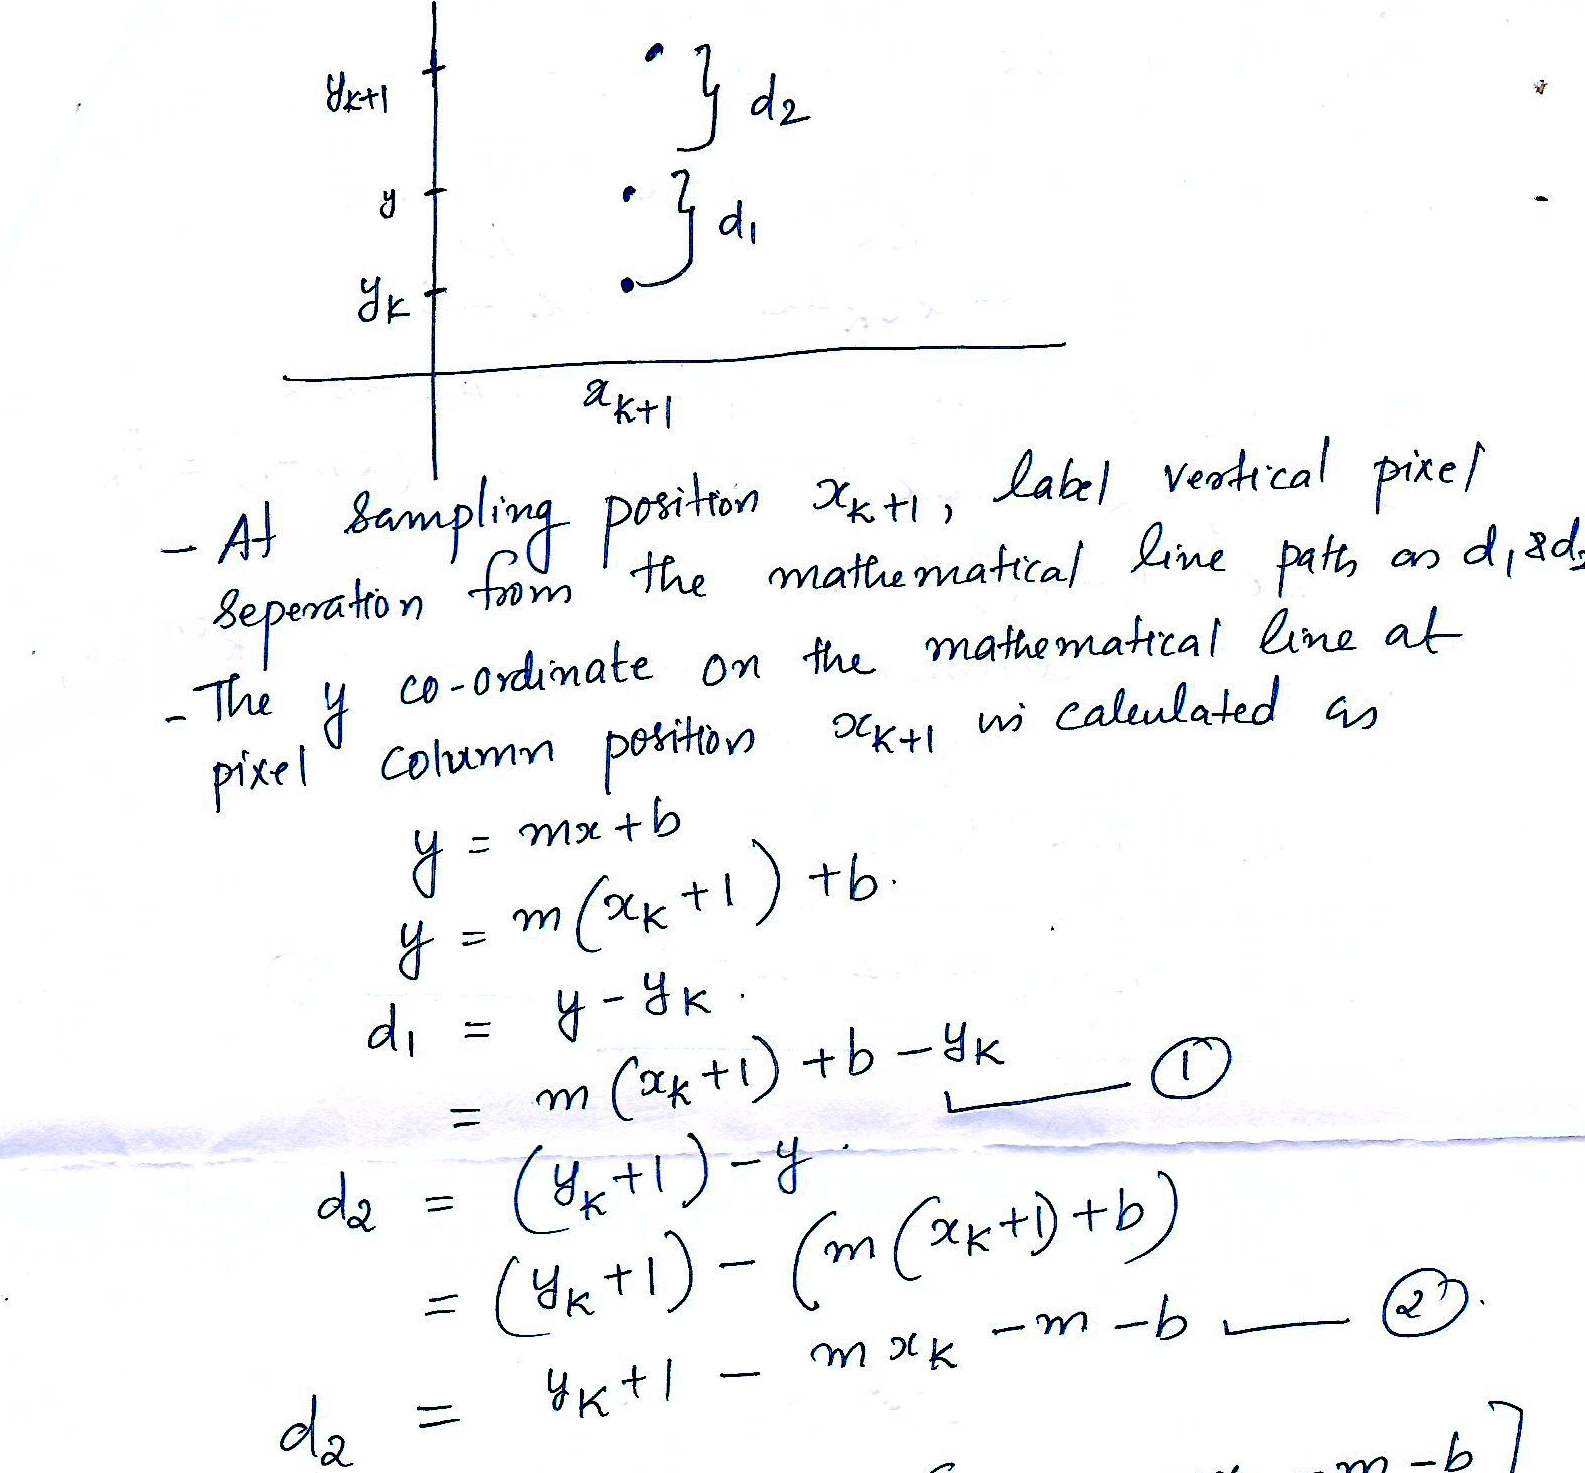 yk+1
d2
y
d1
yk
xk+1
- At sampling position xk+1, label vertical pixel
seperation from the mathematical line path as d1 & d2
- The y co-ordinate on the mathematical line at
pixel column position xk+1 is calculated as
y = mx + b
y = m(xk + 1) + b.
d1 = y - yk.
= m(xk + 1) + b - yk — ①
d2 = (yk + 1) - y.
= (yk + 1) - (m(xk + 1) + b)
d2 = yk + 1 - mxk - m - b — ②.
- m - b]